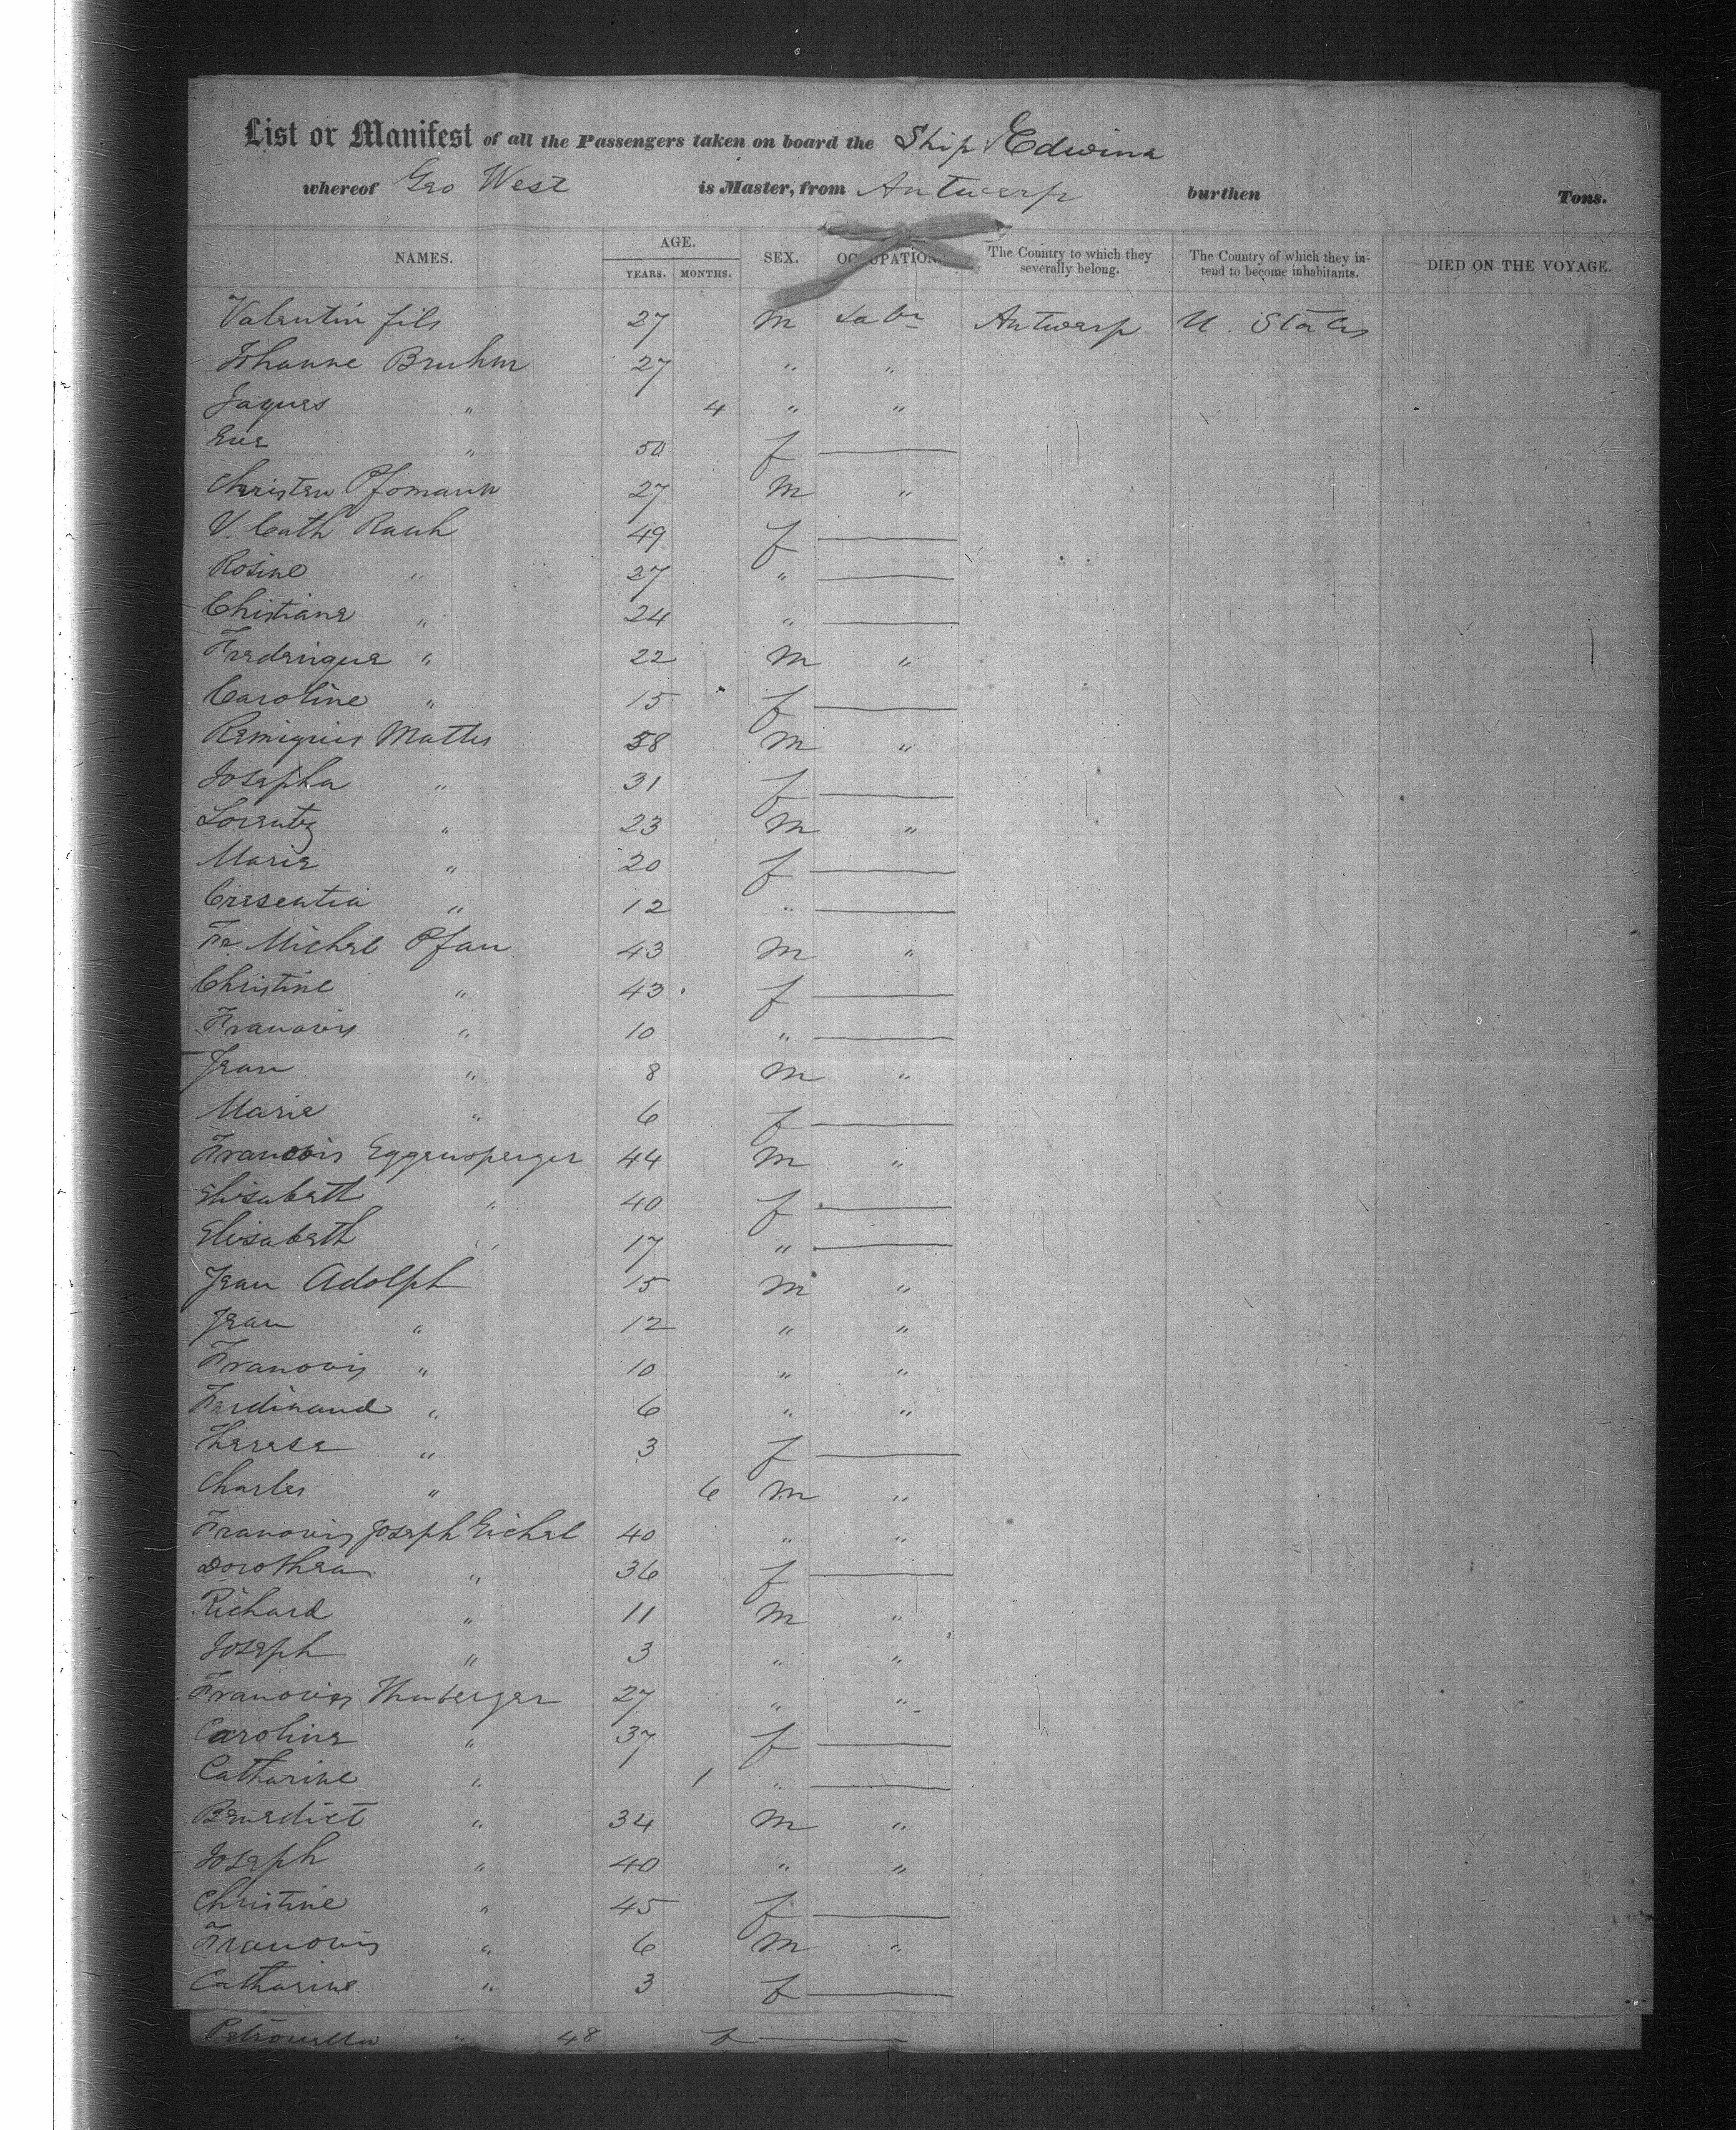 List or Manifest of all the Passengers taken on board the Ship Edwina
whereof Geo West is Master, from Antwerp burthen Tons.
NAMES. AGE. YEARS. MONTHS. SEX. OCCUPATION. The Country to which they severally belong. The Country of which they intend to become inhabitants. DIED ON THE VOYAGE.
Valentin fils 27 m Labr Antwerp U. States
Johanne Bruhm 27 " "
Jaques " 4 " "
Eve " 50 f —
Christen Pfomann 27 m "
V. Cath Rauh 49 f —
Rosine " 27 " —
Chistiane " 24 " —
Frederique " 22 m "
Caroline " 15 f —
Remigius Mattes 58 m "
Josepha " 31 f —
Lorentz " 23 m "
Marie " 20 f —
Cresentia " 12 " —
Fr. Michel Pfau 43 m "
Christine " 43 f —
Francois " 10 " —
Jean " 8 m "
Marie " 6 f —
Francois Eggensperger 44 m "
Elisabeth " 40 f —
Elisabeth " 17 " —
Jean Adolph 15 m "
Jean " 12 " "
Francois " 10 " "
Ferdinand " 6 " "
Therese " 3 f —
Charles " 6 m "
Francois Joseph Eichel 40 " "
Dorothea " 36 f —
Richard " 11 m "
Joseph " 3 " "
Francois 27 " "
Caroline " 37 f —
Catharine " 1 " —
Benedict " 34 m "
Joseph " 40 " "
Christine " 45 f —
Francois " 6 m "
Catharine " 3 f —
Petronella " 48 f —